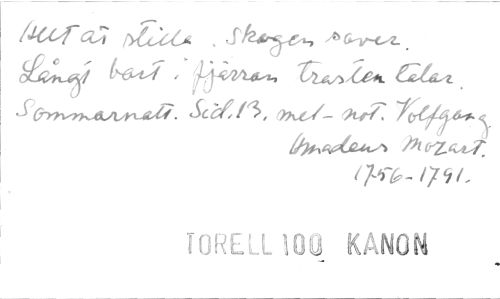 Allt är stilla. Skogen sover.
Långt bort i fjärran trasten talar.
Sommarnatt. Sid. 13. mel-not. Volfgang
Amadeus Mozart.
1756-1791.
TORELL 100 KANON